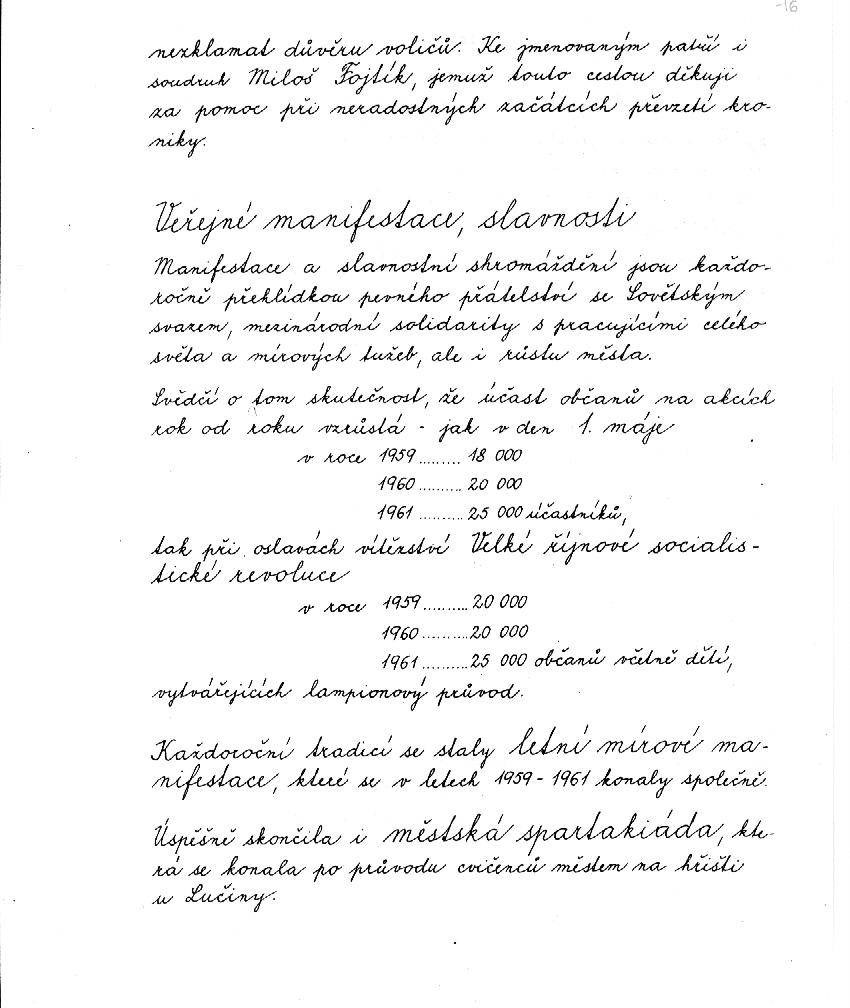 -16
nezklamat důvěru voličů. Ke jmenovaným patří i
soudruh Miloš Fojtík, jemuž touto cestou děkuji
za pomoc při neradostných začátcích převzetí kro-
niky.
Veřejné manifestace, slavnosti
Manifestace a slavnostní shromáždění jsou každo-
ročně přehlídkou pevného přátelství se Sovětským
svazem, mezinárodní solidarity s pracujícími celého
světa a mírových tužeb, ale i růstu města.
Svědčí o tom skutečnost, že účast občanů na akcích
rok od roku vzrůstá - jak v den 1. máje
v roce 1959......... 18 000
1960.......... 20 000
1961.......... 25 000 účastníků,
tak při oslavách vítězství Velké říjnové socialis-
tické revoluce
v roce 1959.......... 20 000
1960.......... 20 000
1961.......... 25 000 občanů včetně dětí,
vytvářejících lampionový průvod.
Každoroční tradicí se staly letní mírové ma-
nifestace, které se v letech 1959 - 1961 konaly společně.
Úspěšně skončila i městská spartakiáda, kte-
rá se konala po průvodu cvičenců městem na hřišti
u Lučiny.